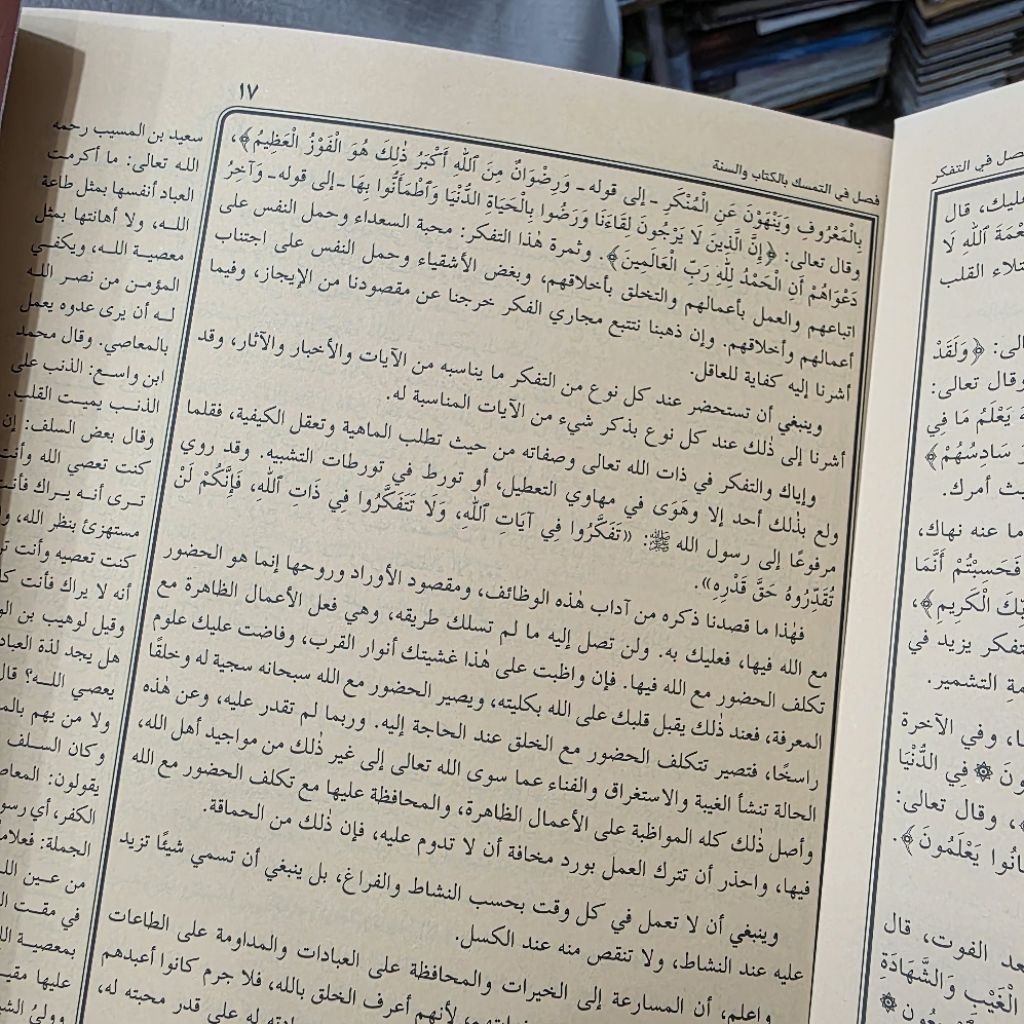 فصل في التمسك بالكتاب والسنة
١٧
بِالْمَعْرُوفِ وَيَنْهَوْنَ عَنِ الْمُنْكَرِ ـ إلى قوله ـ وَرِضْوَانٌ مِنَ ٱللهِ أَكْبَرُ ذٰلِكَ هُوَ الْفَوْزُ الْعَظِيمُ﴾،
وقال تعالى: ﴿إِنَّ الَّذِينَ لَا يَرْجُونَ لِقَاءَنَا وَرَضُوا بِالْحَيَاةِ الدُّنْيَا وَٱطْمَأَنُّوا بِهَا ـ إلى قوله ـ وَآخِرُ
دَعْوَاهُمْ أَنِ الْحَمْدُ لِلّٰهِ رَبِّ الْعَالَمِينَ﴾. وثمرة هٰذا التفكر: محبة السعداء وحمل النفس على
اتباعهم والعمل بأعمالهم والتخلق بأخلاقهم، وبغض الأشقياء وحمل النفس على اجتناب
أعمالهم وأخلاقهم. وإن ذهبنا نتتبع مجاري الفكر خرجنا عن مقصودنا من الإيجاز، وفيما
أشرنا إليه كفاية للعاقل.
وينبغي أن تستحضر عند كل نوع من التفكر ما يناسبه من الآيات والأخبار والآثار، وقد
أشرنا إلى ذٰلك عند كل نوع بذكر شيء من الآيات المناسبة له.
وإياك والتفكر في ذات الله تعالى وصفاته من حيث تطلب الماهية وتعقل الكيفية، فقلما
ولع بذٰلك أحد إلا وهَوَى في مهاوي التعطيل، أو تورط في تورطات التشبيه. وقد روي
مرفوعًا إلى رسول الله ﷺ: «تَفَكَّرُوا فِي آيَاتِ ٱللهِ، وَلَا تَتَفَكَّرُوا فِي ذَاتِ ٱللهِ، فَإِنَّكُمْ لَنْ
تُقَدِّرُوهُ حَقَّ قَدْرِهِ».
فهٰذا ما قصدنا ذكره من آداب هٰذه الوظائف، ومقصود الأوراد وروحها إنما هو الحضور
مع الله فيها، فعليك به. ولن تصل إليه ما لم تسلك طريقه، وهي فعل الأعمال الظاهرة مع
تكلف الحضور مع الله فيها. فإن واظبت على هٰذا غشيتك أنوار القرب، وفاضت عليك علوم
المعرفة، فعند ذٰلك يقبل قلبك على الله بكليته، ويصير الحضور مع الله سبحانه سجية له وخلقًا
راسخًا، فتصير تتكلف الحضور مع الخلق عند الحاجة إليه. وربما لم تقدر عليه، وعن هٰذه
الحالة تنشأ الغيبة والاستغراق والفناء عما سوى الله تعالى إلى غير ذٰلك من مواجيد أهل الله،
وأصل ذٰلك كله المواظبة على الأعمال الظاهرة، والمحافظة عليها مع تكلف الحضور مع الله
فيها، واحذر أن تترك العمل بورد مخافة أن لا تدوم عليه، فإن ذٰلك من الحماقة.
وينبغي أن لا تعمل في كل وقت بحسب النشاط والفراغ، بل ينبغي أن تسمي شيئًا تزيد
عليه عند النشاط، ولا تنقص منه عند الكسل.
واعلم، أن المسارعة إلى الخيرات والمحافظة على العبادات والمداومة على الطاعات
لأنهم أعرف الخلق بالله، فلا جرم كانوا أعبدهم
له على قدر محبته له،
سعيد بن المسيب رحمه
الله تعالى: ما أكرمت
العباد أنفسها بمثل طاعة
اللـه، ولا أهانتها بمثل
معصية اللـه، ويكفـي
المؤمـن من نصـر اللـه
لـه أن يرى عدوه يعمل
بالمعاصي. وقال محمد
ابن واسـع: الذنب على
الذنـب يميـت القلب.
وقال بعض السلف: إن
كنت تعصي الله وأنت
تـرى أنـه يـراك فأنت
مستهزئ بنظر الله،
كنت تعصيه وأنت
أنه لا يراك فأنت
وقيل لوهيب بن
هل يجد لذة
يعصي اللـه؟ قال
ولا من يهم
وكان السلف
يقولون:
الكفر، أي
الجملة:
من عـين
في مقـت
بمعصية
عليها
في التفكر
قال
ٱللهِ لَا
القلب
﴿وَلَقَدْ
وقال تعالى:
يَعْلَمُ مَا فِي
سَادِسُهُمْ﴾
أمرك.
ما عنه نهاك،
فَحَسِبْتُمْ أَنَّمَا
الْكَرِيمِ﴾،
يزيد في
التشمير.
وفي الآخرة
فِي الدُّنْيَا
وقال تعالى:
يَعْلَمُونَ﴾.
الفوت، قال
الْغَيْبِ وَالشَّهَادَةِ